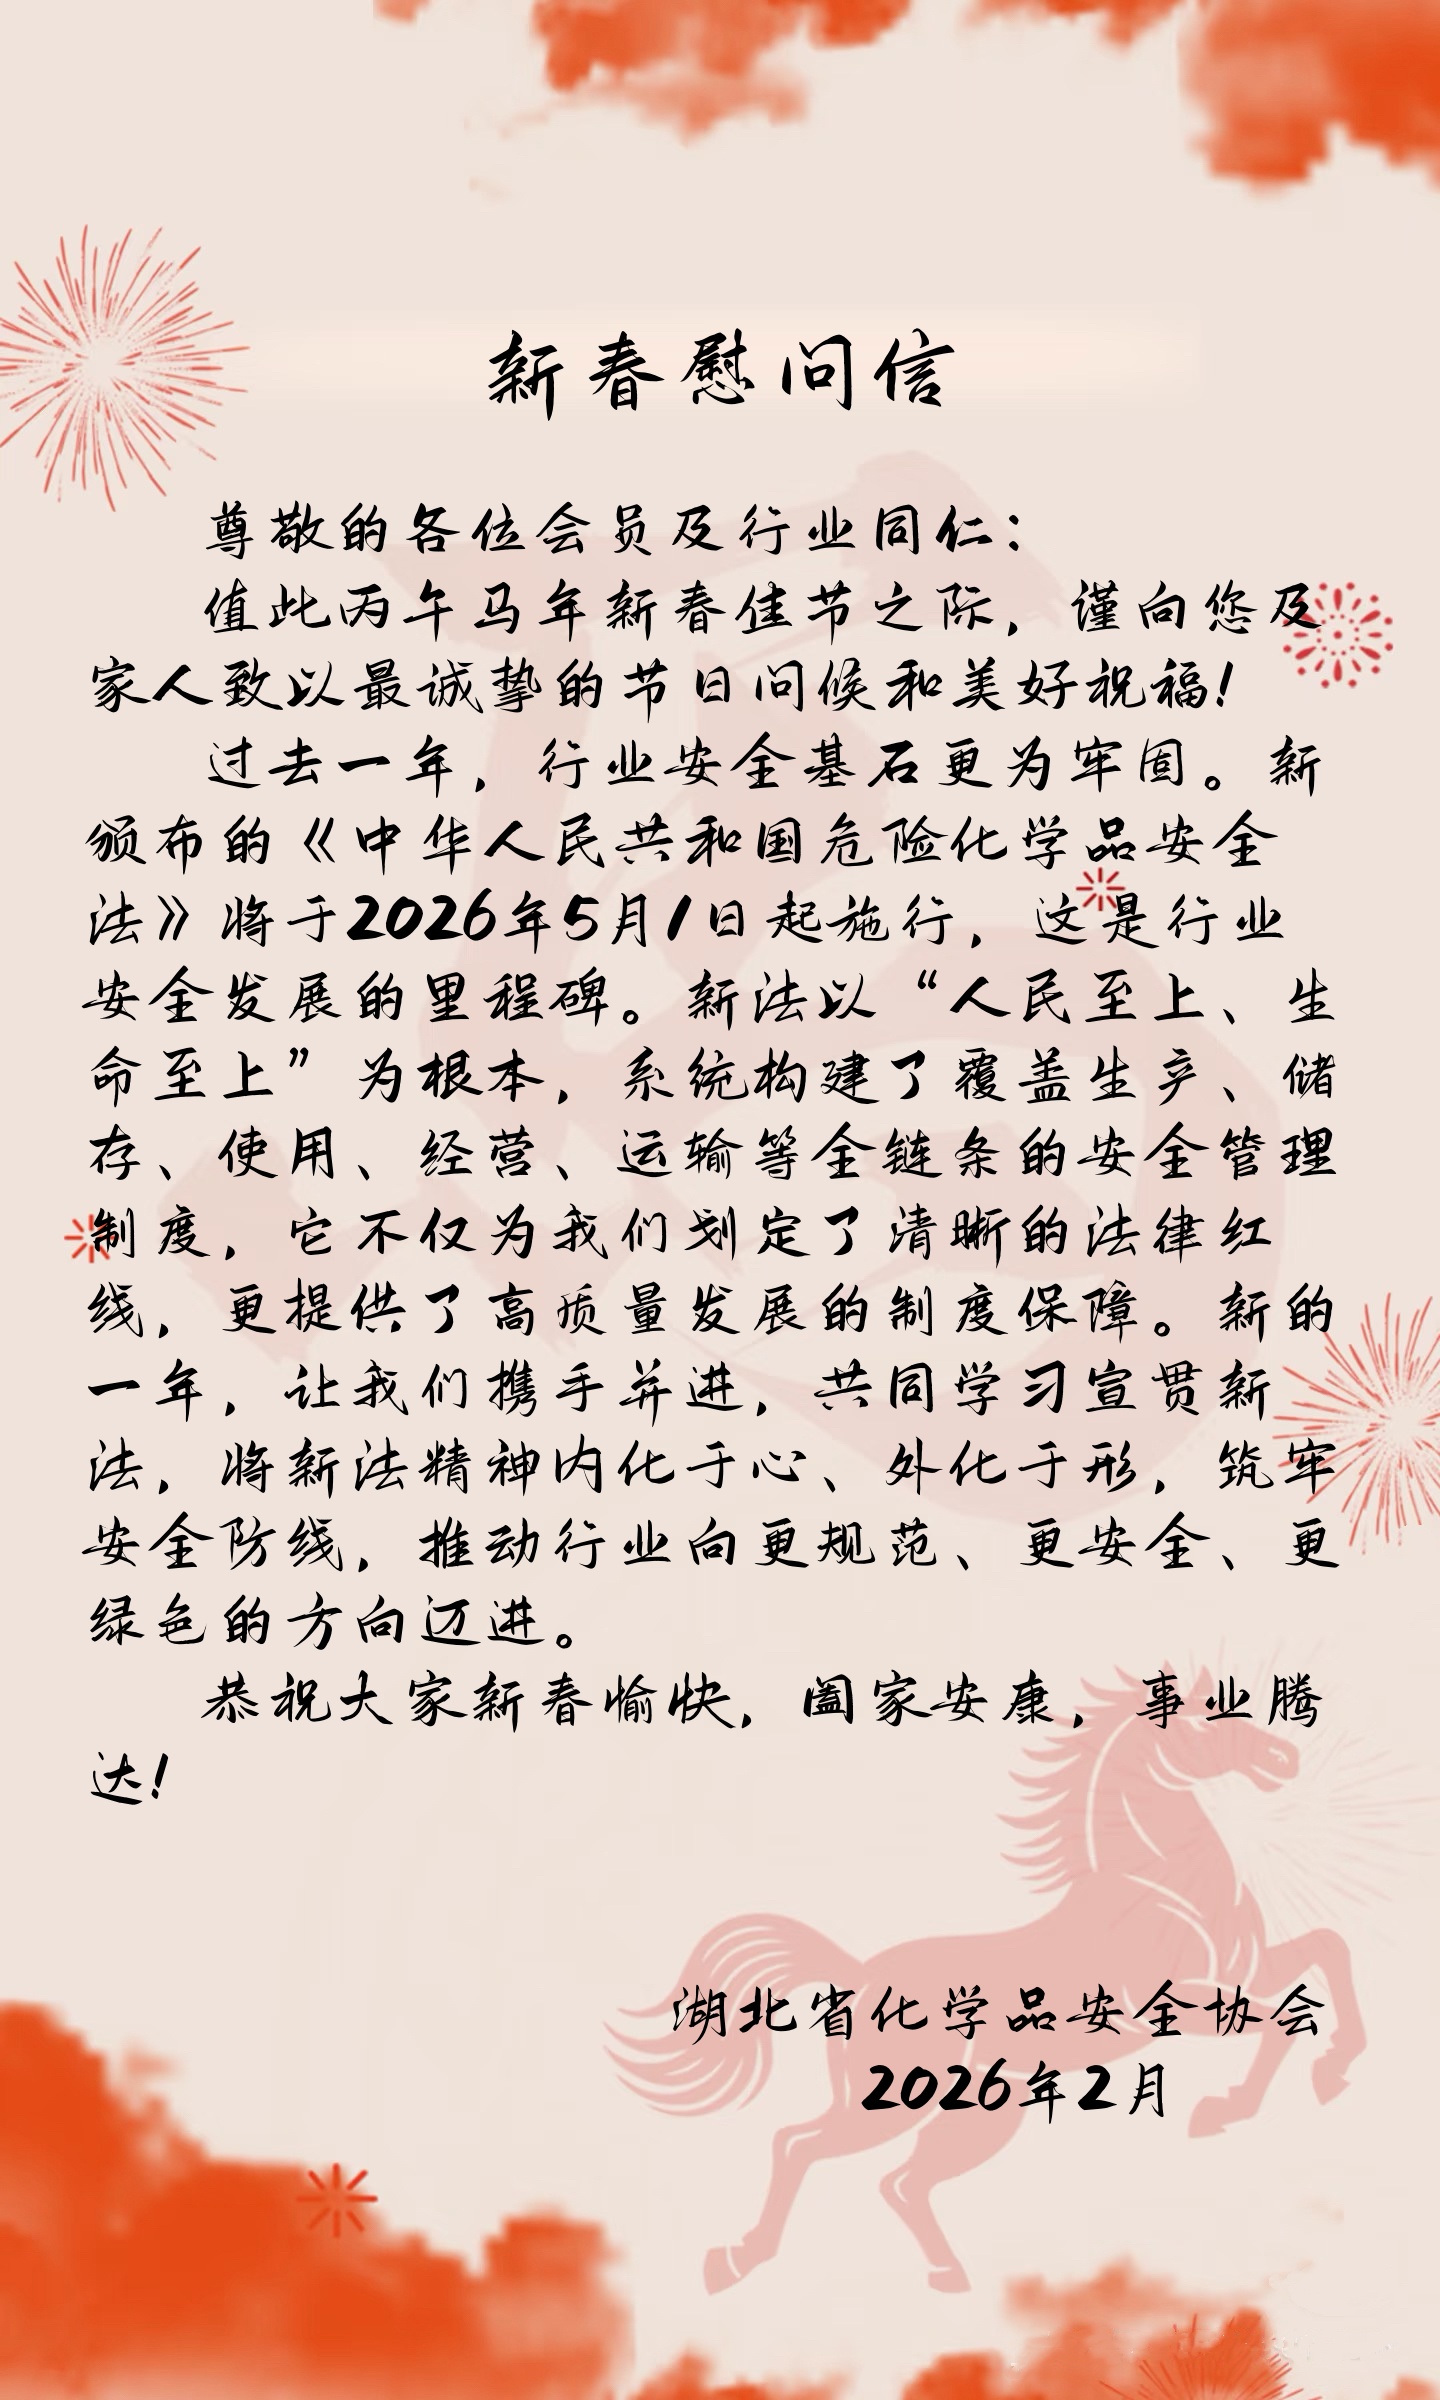 新春慰问信
尊敬的各位会员及行业同仁：
值此丙午马年新春佳节之际，谨向您及
家人致以最诚挚的节日问候和美好祝福！
过去一年，行业安全基石更为牢固。新
颁布的《中华人民共和国危险化学品安全
法》将于2026年5月1日起施行，这是行业
安全发展的里程碑。新法以“人民至上、生
命至上”为根本，系统构建了覆盖生产、储
存、使用、经营、运输等全链条的安全管理
制度，它不仅为我们划定了清晰的法律红
线，更提供了高质量发展的制度保障。新的
一年，让我们携手并进，共同学习宣贯新
法，将新法精神内化于心、外化于形，筑牢
安全防线，推动行业向更规范、更安全、更
绿色的方向迈进。
恭祝大家新春愉快，阖家安康，事业腾
达！
湖北省化学品安全协会
2026年2月